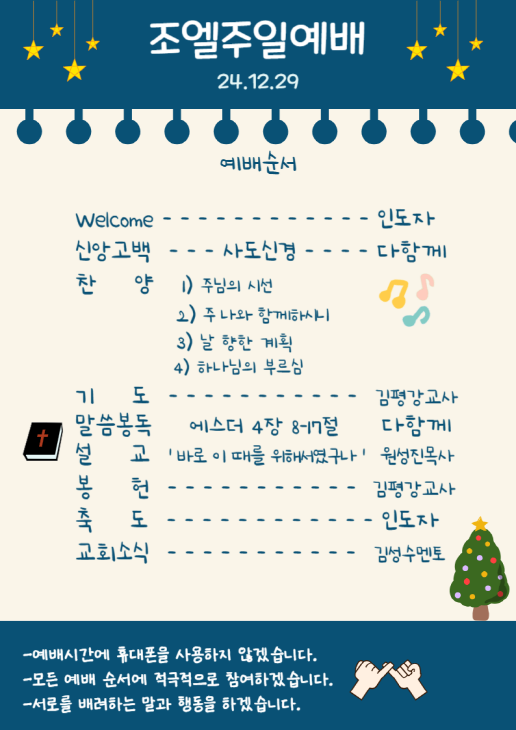 조엘주일예배
24.12.29
예배순서
Welcome - - - - - - - - - - - - 인도자
신앙고백 - - - 사도신경 - - - - 다함께
찬 양 1) 주님의 시선
2) 주 나와 함께하시니
3) 날 향한 계획
4) 하나님의 부르심
기 도 - - - - - - - - - - - 김평강교사
말씀봉독 에스더 4장 8-17절 다함께
설 교 '바로 이 때를 위해서였구나' 원성진목사
봉 헌 - - - - - - - - - - - 김평강교사
축 도 - - - - - - - - - - - - 인도자
교회소식 - - - - - - - - - - - 김성수멘토
-예배시간에 휴대폰을 사용하지 않겠습니다.
-모든 예배 순서에 적극적으로 참여하겠습니다.
-서로를 배려하는 말과 행동을 하겠습니다.